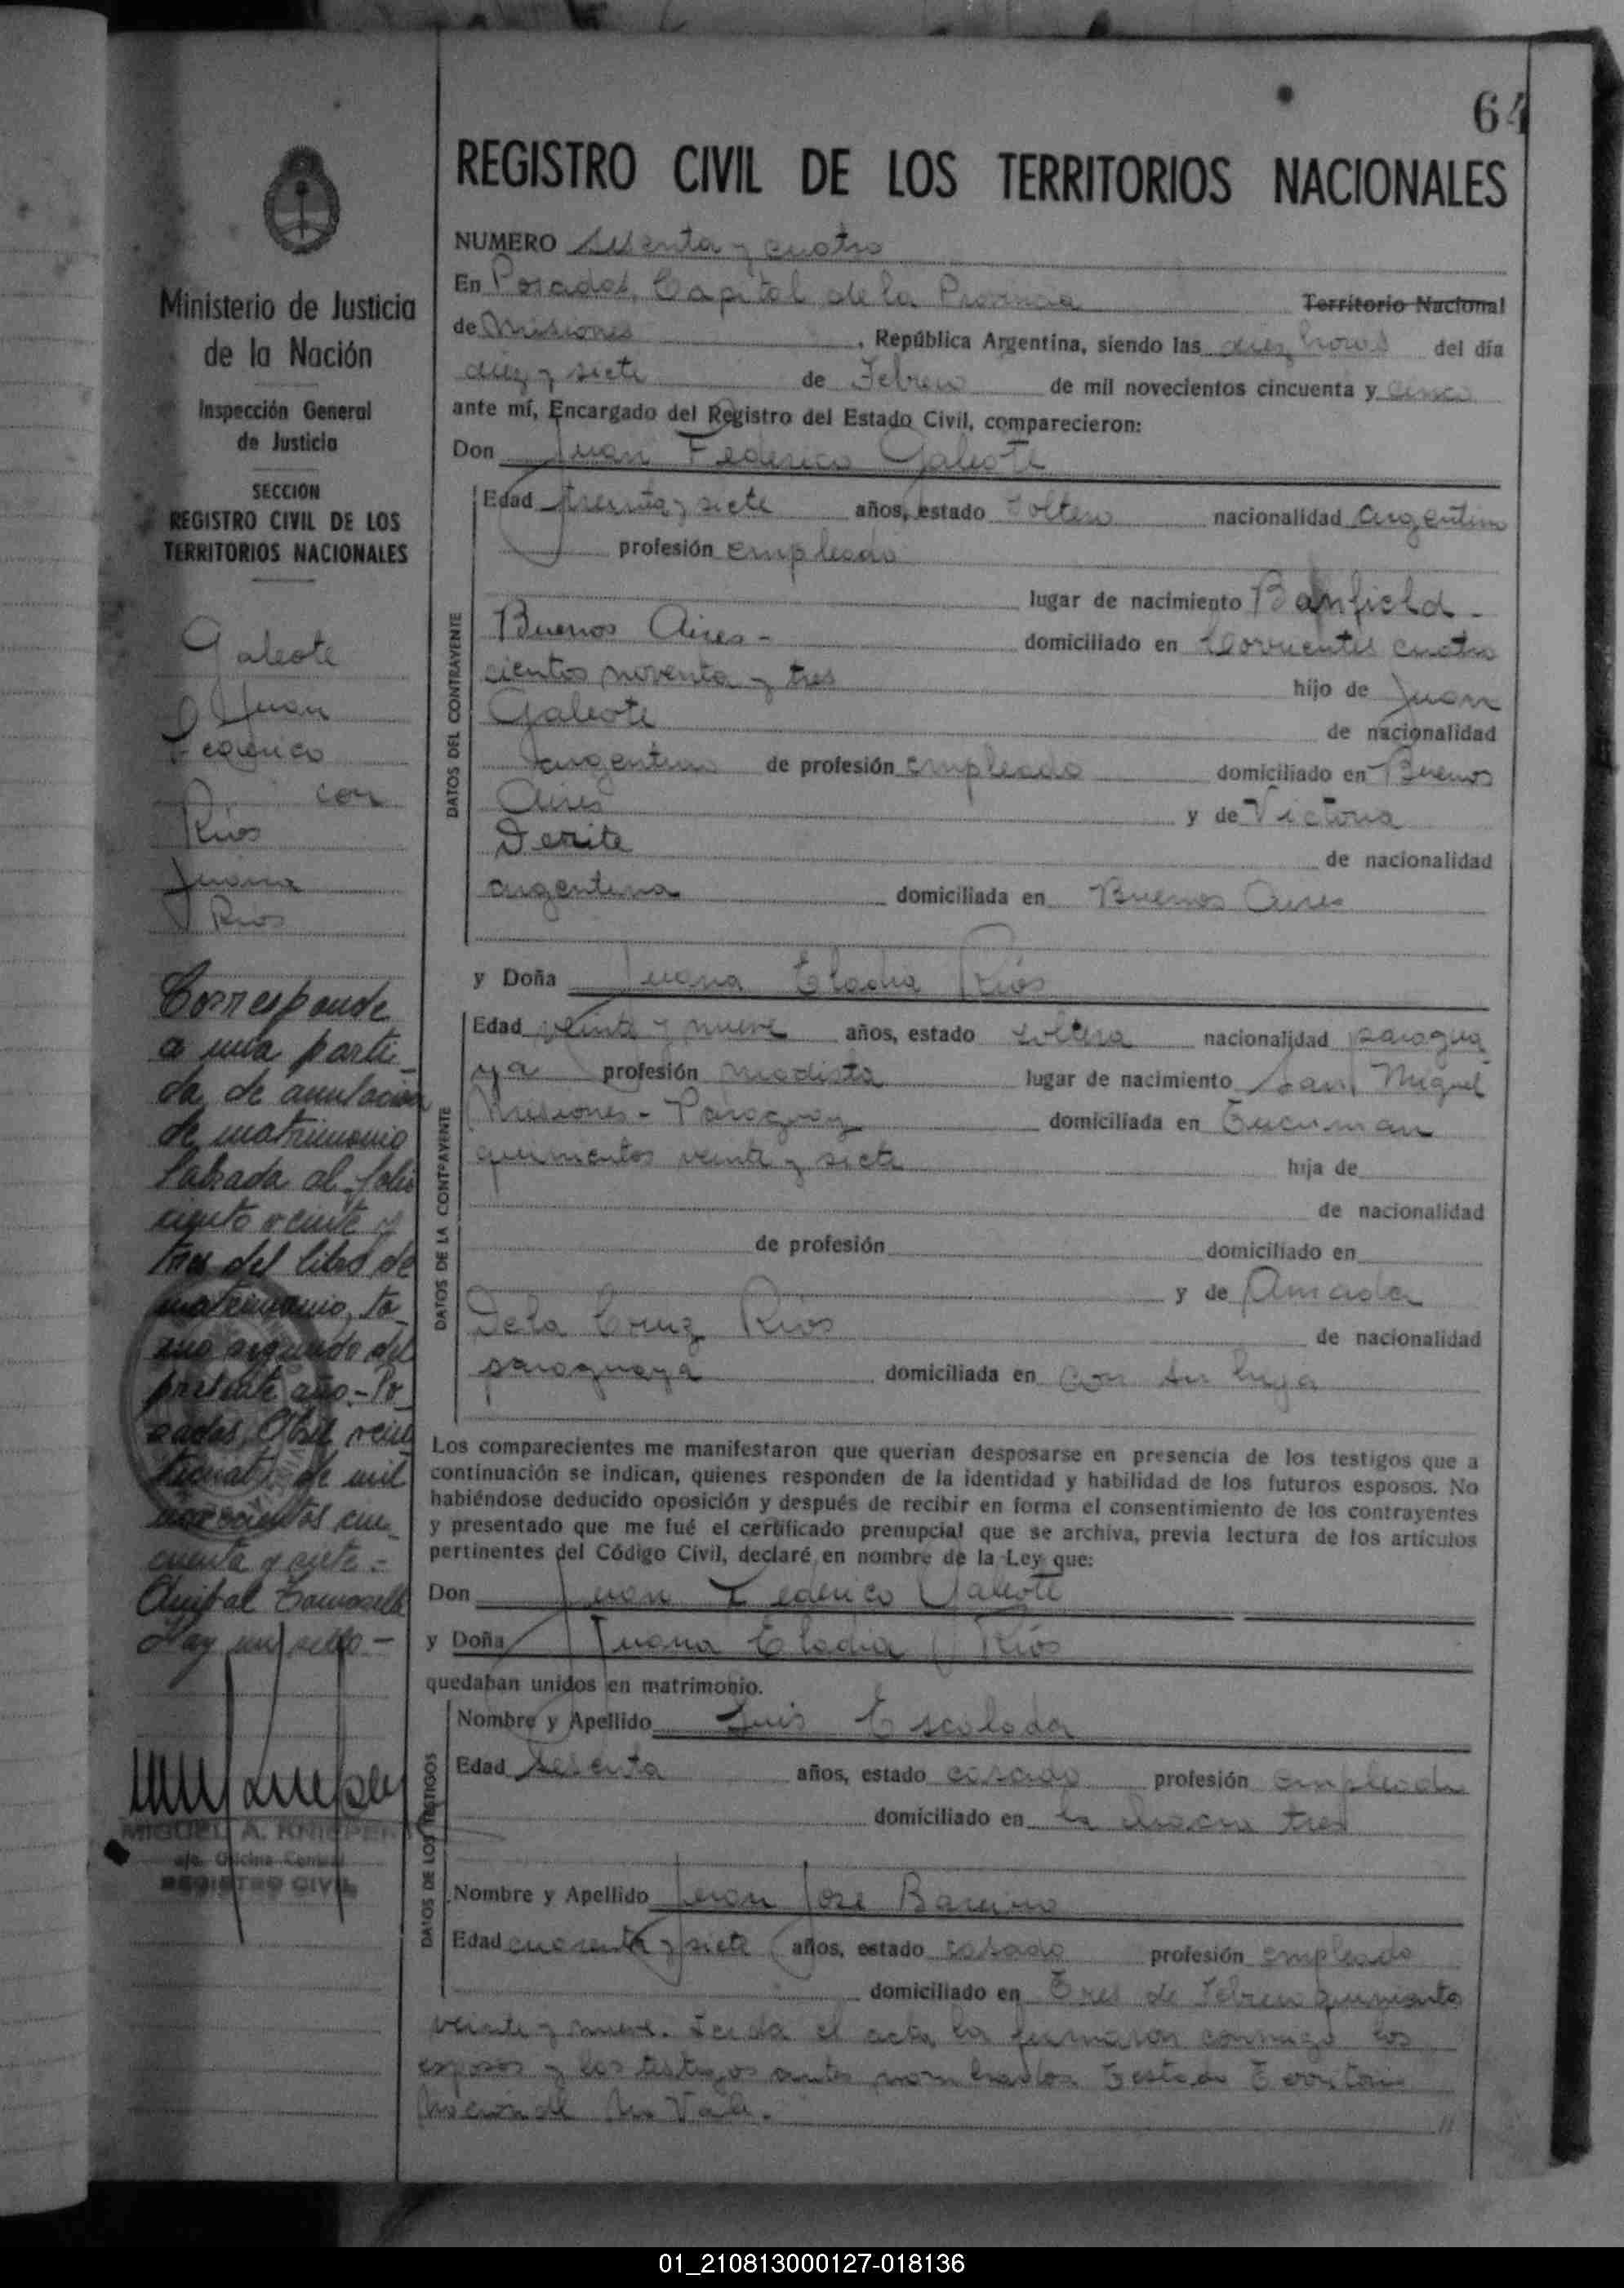 64
REGISTRO CIVIL DE LOS TERRITORIOS NACIONALES
NUMERO Sesenta y cuatro
En Posadas, Capital de la Provincia Territorio Nacional
de Misiones, República Argentina, siendo las diez horas del día
diez y siete de Febrero de mil novecientos cincuenta y cinco
ante mí, Encargado del Registro del Estado Civil, comparecieron:
Don Juan Federico Galeote
Edad treinta y siete años, estado soltero nacionalidad argentino
profesión empleado
lugar de nacimiento Banfield -
Buenos Aires - domiciliado en Corrientes cuatro
cientos noventa y tres hijo de Juan
Galeote de nacionalidad
argentino de profesión empleado domiciliado en Buenos
Aires y de Victoria
de nacionalidad
argentina domiciliada en Buenos Aires
y Doña Juana Eladia Ríos
Edad veinte y nueve años, estado soltera nacionalidad paragua
ya profesión modista lugar de nacimiento San Miguel
Misiones - Paraguay domiciliada en Tucuman
quinientos veinte y siete hija de
de nacionalidad
de profesión domiciliado en
y de Amada
De la Cruz Ríos de nacionalidad
paraguaya domiciliada en con su hija
Los comparecientes me manifestaron que querían desposarse en presencia de los testigos que a
continuación se indican, quienes responden de la identidad y habilidad de los futuros esposos. No
habiéndose deducido oposición y después de recibir en forma el consentimiento de los contrayentes
y presentado que me fué el certificado prenupcial que se archiva, previa lectura de los artículos
pertinentes del Código Civil, declaré en nombre de la Ley que:
Don Juan Federico Galeote
y Doña Juana Eladia Ríos
quedaban unidos en matrimonio.
Nombre y Apellido Luis Escalada
Edad sesenta años, estado casado profesión empleado
domiciliado en la chacra tres
Nombre y Apellido Juan José
Edad cuarenta y siete años, estado casado profesión empleado
domiciliado en Tres de Febrero quinientos
veinte y nueve. Leida el acta la firmaron conmigo los
esposos y los testigos antes nombrados Testado Territorio
Nacional No Vale.
DATOS DEL CONTRAYENTE
DATOS DE LA CONTRAYENTE
DATOS DE LOS TESTIGOS
Ministerio de Justicia
de la Nación
Inspección General
de Justicia
SECCION
REGISTRO CIVIL DE LOS
TERRITORIOS NACIONALES
Galeote
Juan
Federico
con
Ríos
Juana
Ríos
Corresponde
a una parti-
da de anulación
de matrimonio
labrada al folio
ciento veinte y
tres del libro de
matrimonio, to-
mo segundo del
presente año - Po-
sadas, Abril
de mil
novecientos cin-
cuenta y siete -
Anibal
Hay un sello -
MIGUEL A. KNIEPER
Oficina Central
REGISTRO CIVIL
01_210813000127-018136